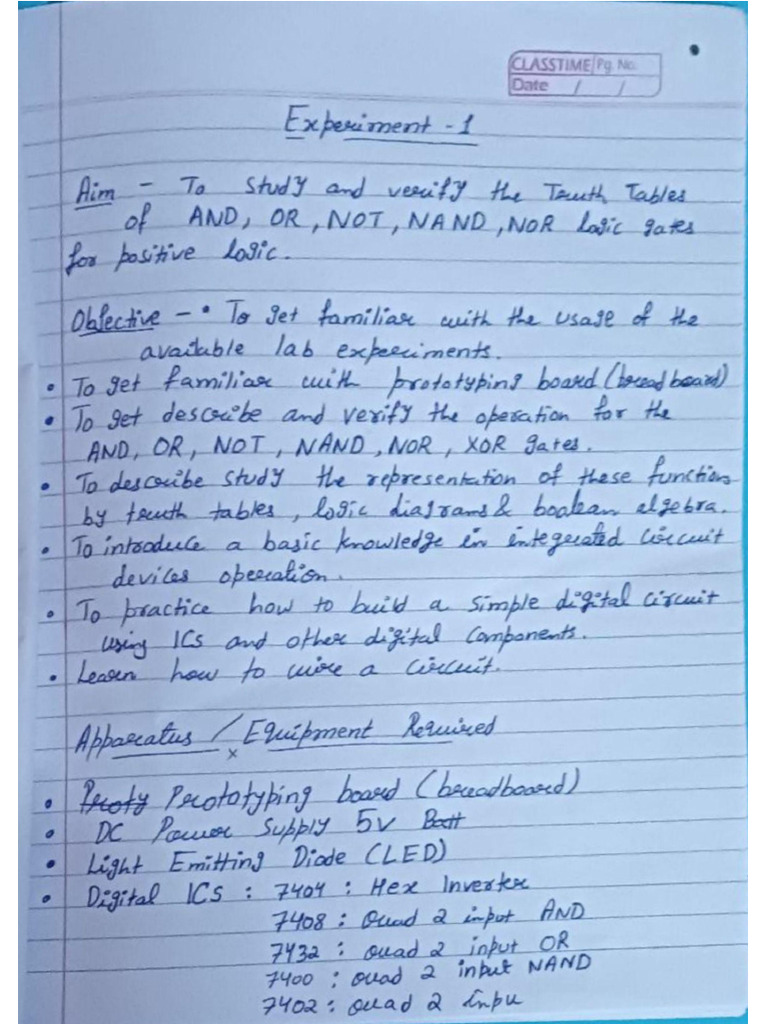 CLASSTIME Pg. No.
Date / /
Experiment - 1
Aim - To study and verify the Truth Tables
of AND, OR, NOT, NAND, NOR logic gates
for positive logic.
Objective - • To get familiar with the usage of the
available lab experiments.
• To get familiar with prototyping board (breadboard)
• To get describe and verify the operation for the
AND, OR, NOT, NAND, NOR, XOR gates.
• To describe study the representation of these functions
by truth tables, logic diagrams & boolean algebra.
• To introduce a basic knowledge in integerated circuit
devices operation.
• To practice how to build a simple digital circuit
using ICs and other digital components.
• Learn how to wire a circuit.
Apparatus / Equipment Required
x
• Proty Prototyping board (breadboard)
• DC Power Supply 5V Batt
• Light Emitting Diode (LED)
• Digital ICs : 7404 : Hex Inverter
7408 : Quad 2 input AND
7432 : Quad 2 input OR
7400 : Quad 2 input NAND
7402 : Quad 2 inpu